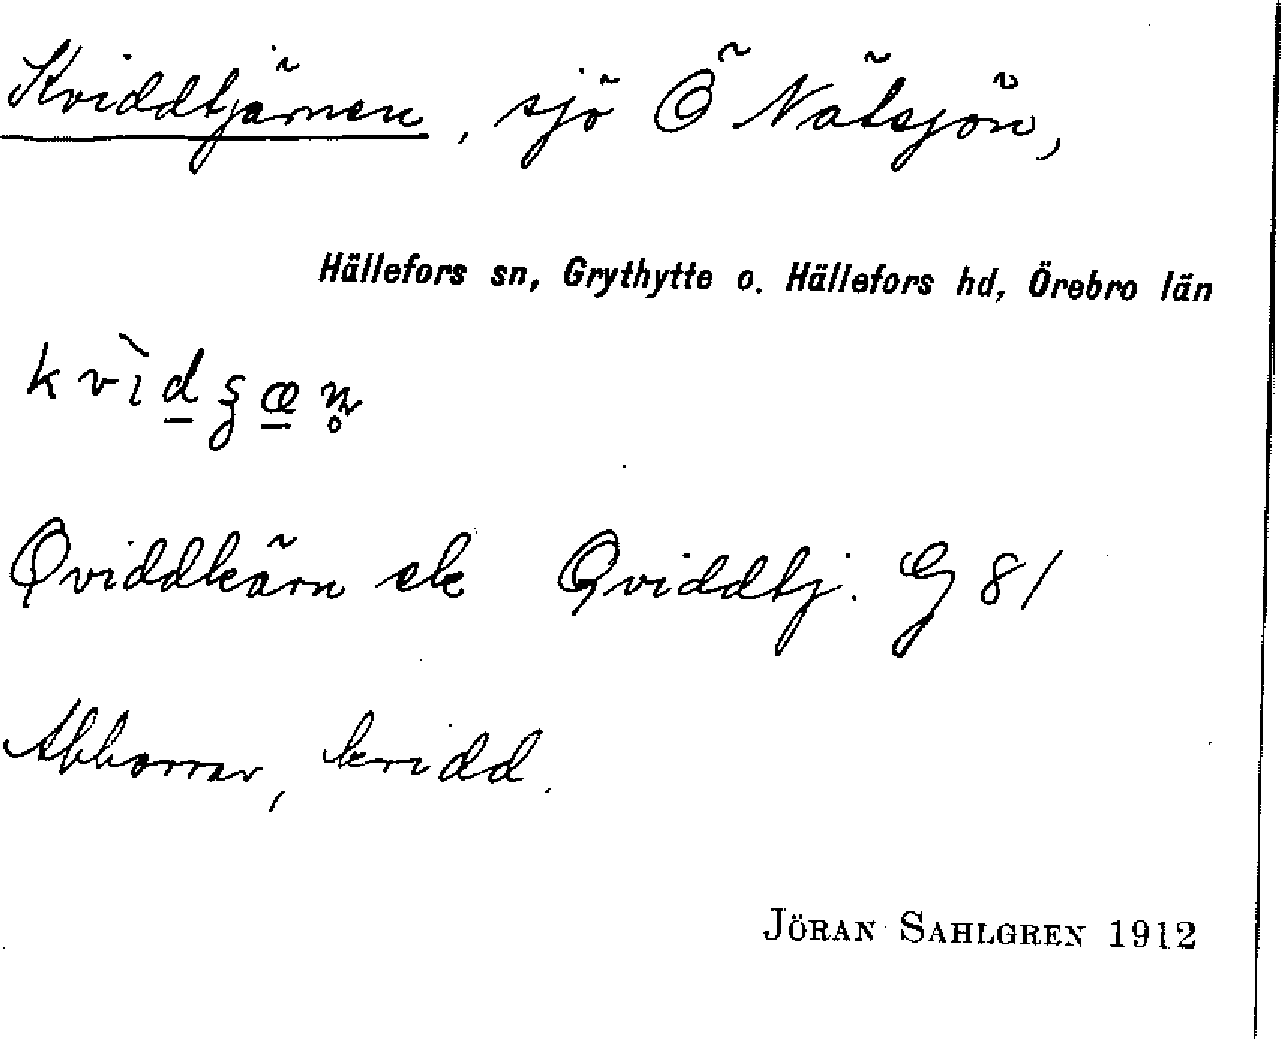 Kviddtjärnen, sjö Ö Nätsjön,
Hällefors sn, Grythytte o. Hällefors hd, Örebro län
Qviddkärn ek Qviddtj. G 81
Abborrar, kvidd.
JÖRAN SAHLGREN 1912